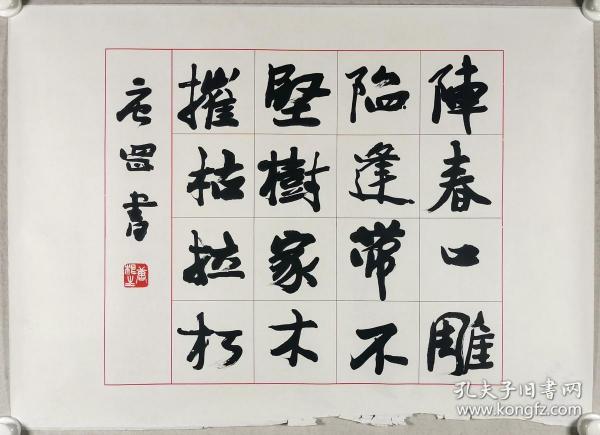 摧堅陷陣
枯樹逢春
拉家帶口
朽木不雕
书
孔夫子旧书网
www.kongfz.com